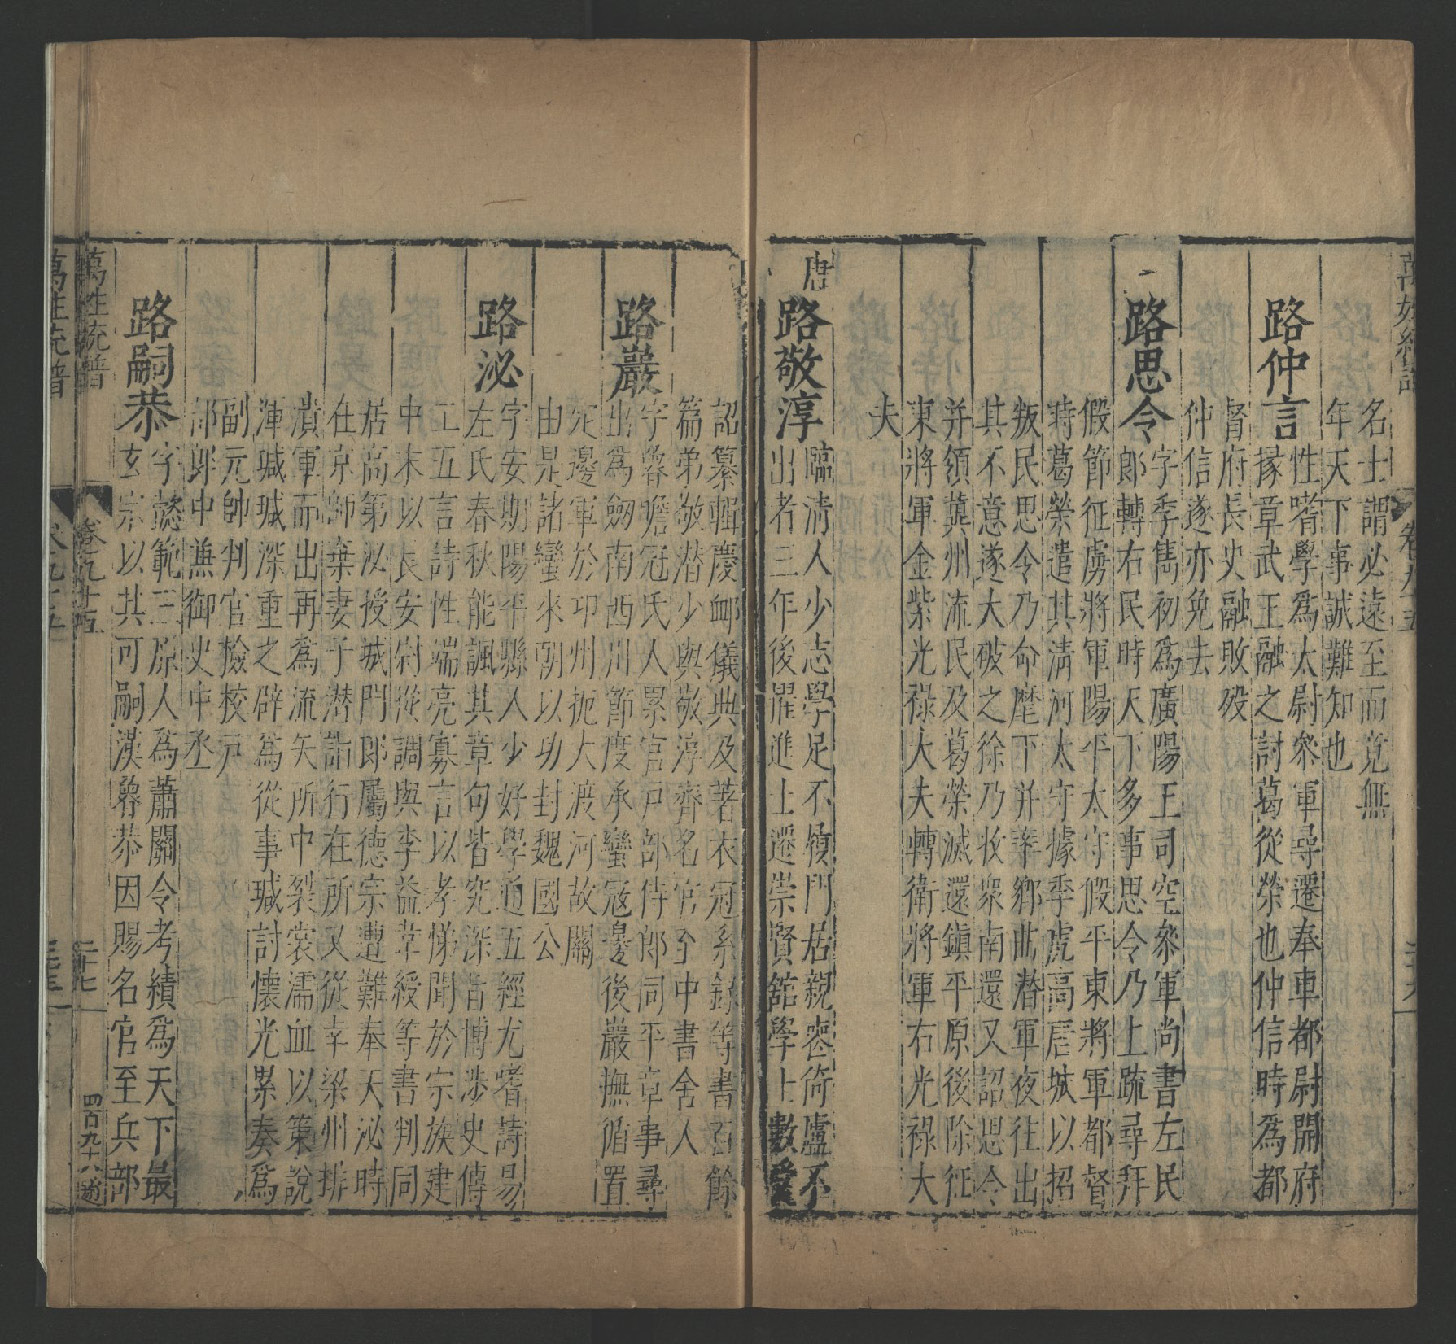 名士謂必遠至而竟無
年天下事誠難知也
路仲言
性嗜學為太尉叅軍尋遷奉車都尉開府
掾章武王融之討葛從榮也仲信時為都
督府長史融敗歿
仲信遂亦免去
路思令
字季雋初為廣陽王司空叅軍尚書左民
郎轉右民時天下多事思令乃上疏尋拜
假節征虜將軍陽平太守假平東將軍都督
時葛榮遣其清河太守據季虎高唐城以招
叛民思令乃命麾下并率鄉曲潛軍夜往出
其不意遂大破之徐乃收衆南還又詔思令
并領冀州流民及葛榮滅還鎮平原後除征
東將軍金紫光祿大夫轉衛將軍右光祿大
夫
唐
路敬淳
臨清人少志學足不履門居親喪倚廬不
出者三年後擢進士遷崇賢舘學士數受
詔纂輯慶卹儀典及著衣冠系錄等書百餘
篇弟敬潜少與敬淳齊名官至中書舍人
路巖
字魯瞻冠氏人累官戸部侍郎同平章事尋
出為劒南西川節度承蠻寇邊後巖撫循置
定邊軍於卭州扼大渡河故關
由是諸蠻來朝以功封魏國公
路泌
字安期陽平縣人少好學通五經尤嗜詩易
左氏春秋能諷其章句皆究深旨博涉史傳
工五言詩性端亮寡言以孝悌聞於宗族建
中末以長安尉從調與李益韋綬等書判同
居高第泌授城門郎屬德宗遭難奉天泌時
在京師棄妻子潜詣行在所又從幸梁州排
潰軍而出再為流矢所中裂裳濡血以策說
渾瑊瑊深重之辟為從事瑊討懷光累奏為
副元帥判官檢校戸
部郎中兼御史中丞
路嗣恭
字懿範三原人為蕭關令考績為天下最
玄宗以其可嗣漢魯恭因賜名官至兵部
萬姓統譜
卷九十五
二十七
四百九十八 趙